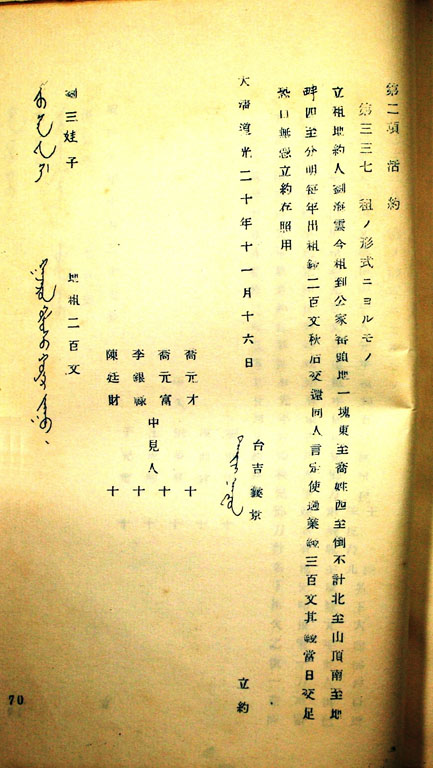 第二項 活約
第三三七 租ノ形式ニヨルモノ
立租地約人劉海雲今租到公家窰頭地一塊東至喬姓西至倒不計北至山頂南至地
畔四至分明每年出租錢二百文秋后交還同人言定使過業錢三百文其錢當日交足
恐口無憑立約存照用
大淸道光二十年十一月十六日 立約
台吉
喬元才 十
喬元富 十
中見人
李銀 十
陳廷財 十
劉三娃子 地租二百文
70